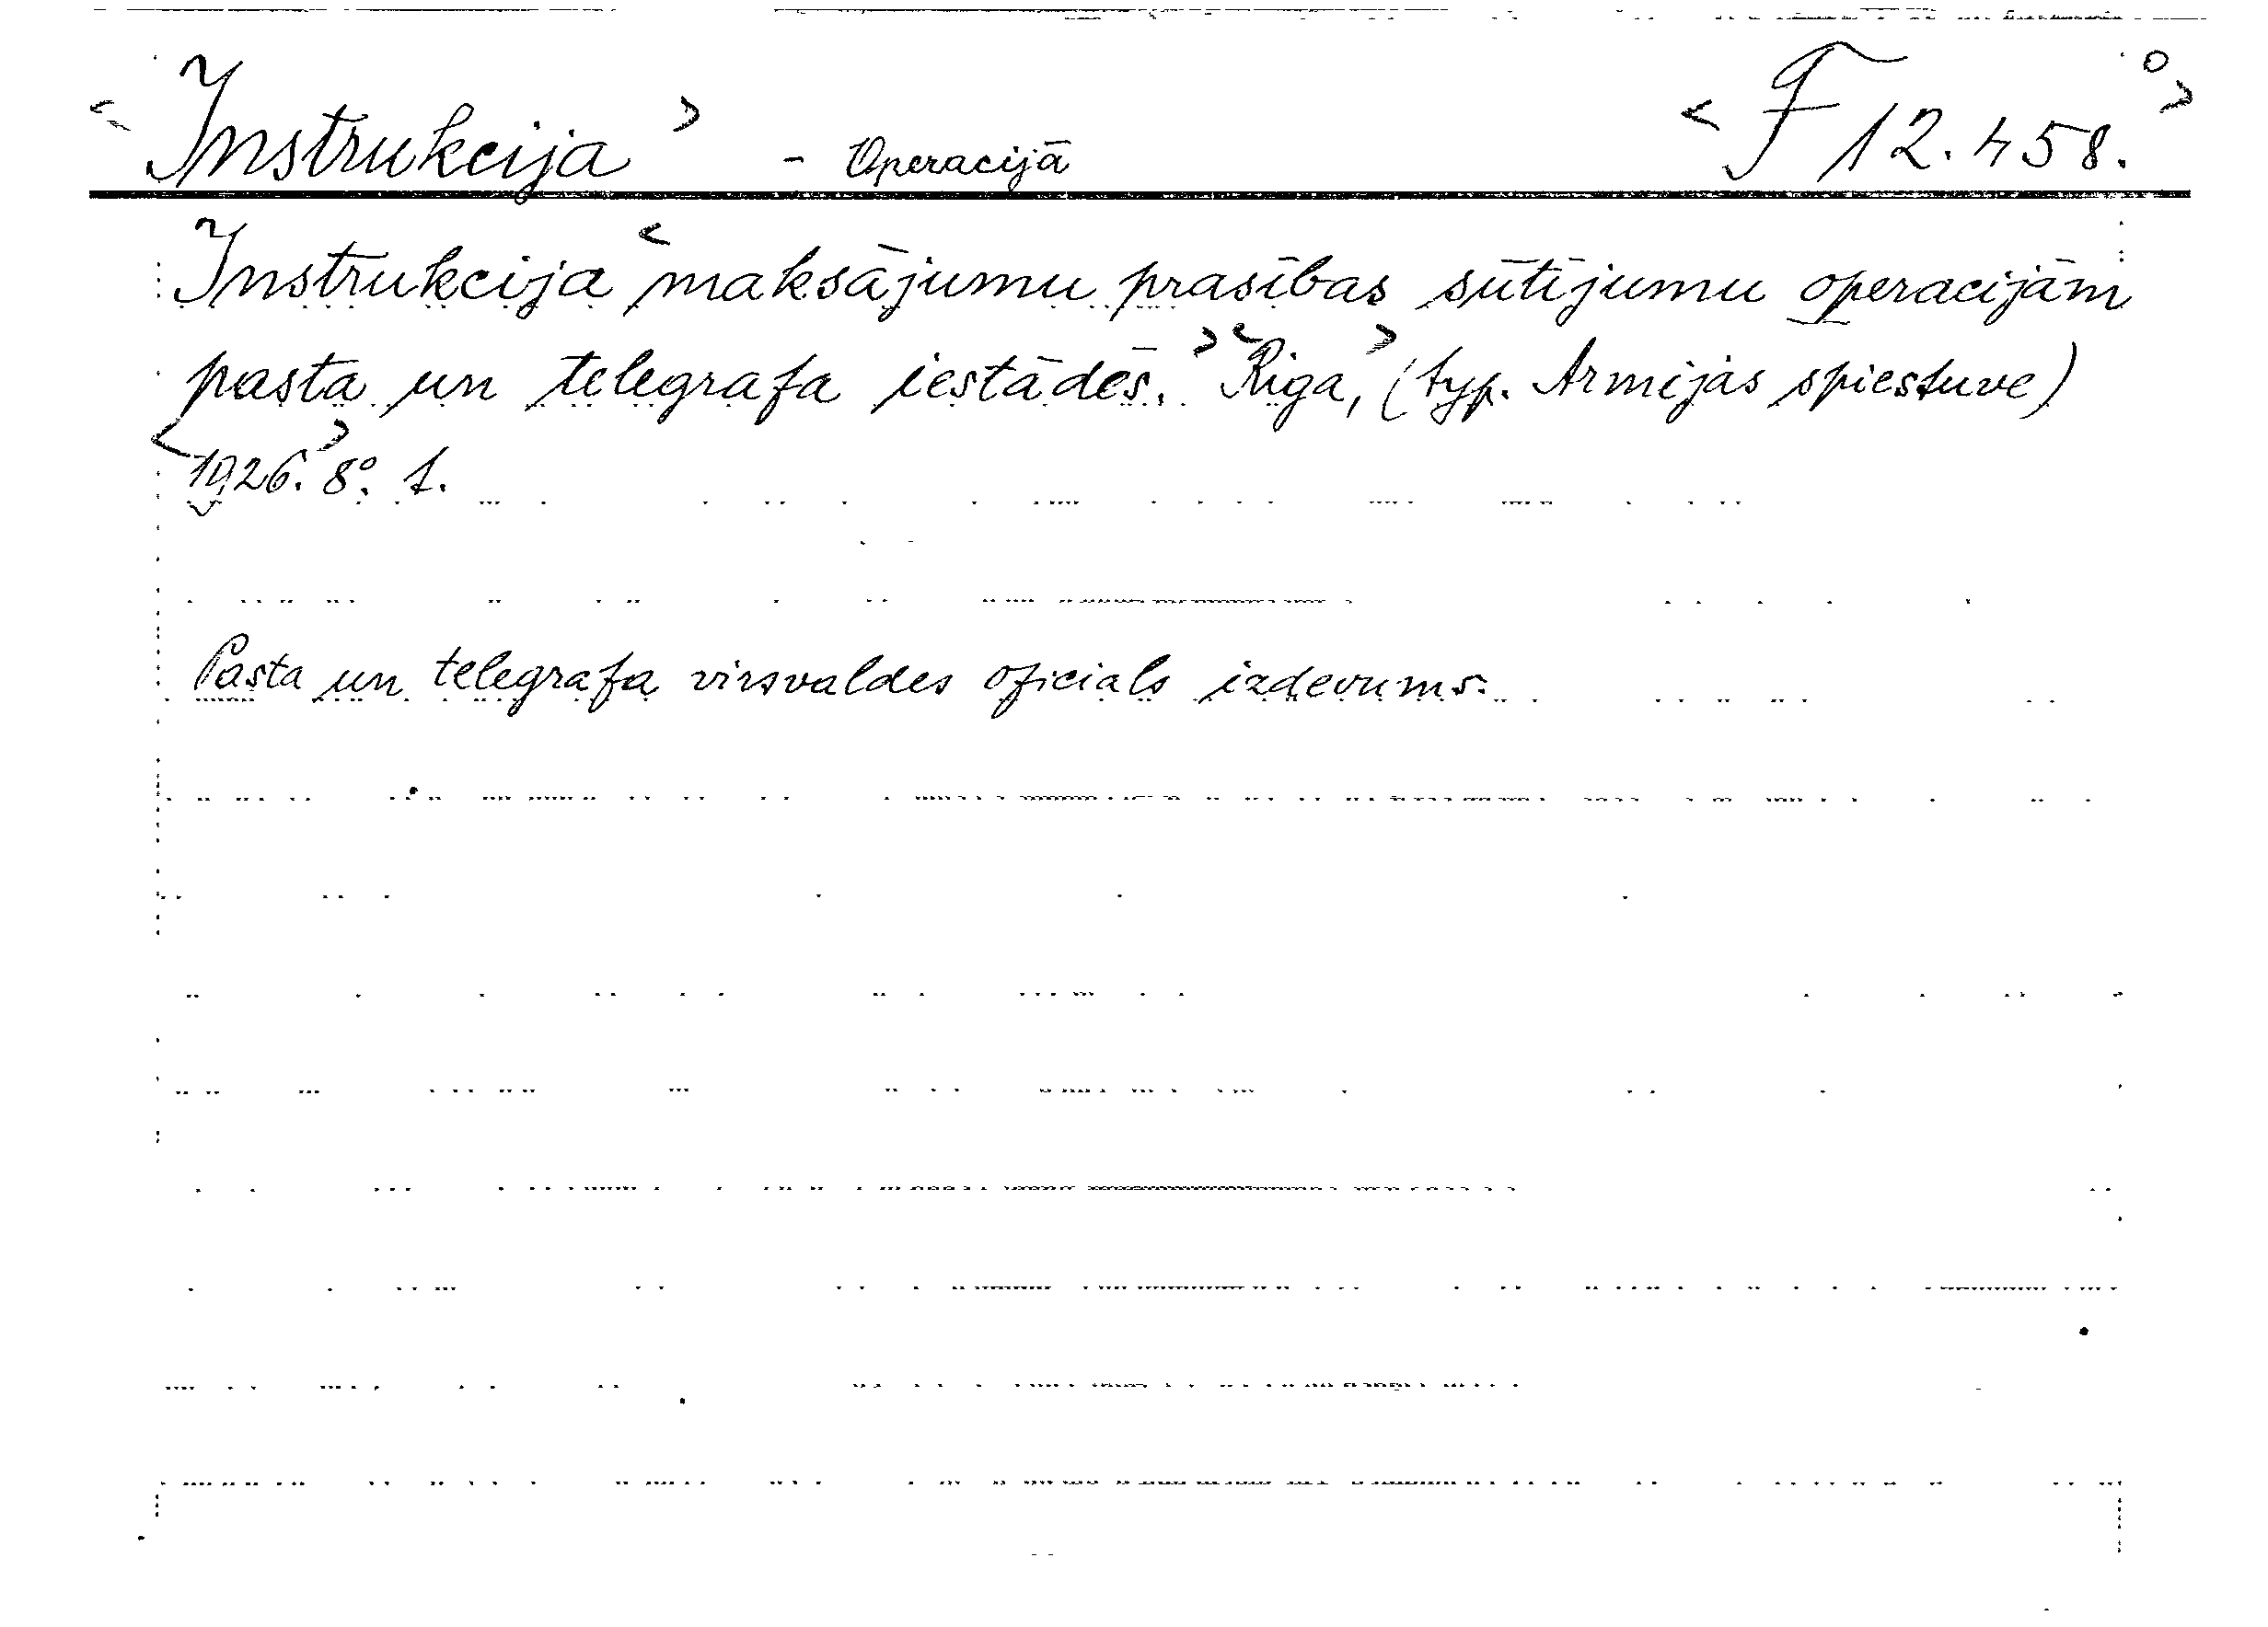 < Instrukcija > - Operacijā < F 12.458. >
Instrukcija < maksājumu prasības sūtījumu operacijām
pasta un telegrafa iestādēs. > < Riga, > (typ. Armijas spiestuve)
< 1926. > 8° 1.
Pasta un telegrafa virsvaldes oficials izdevums.